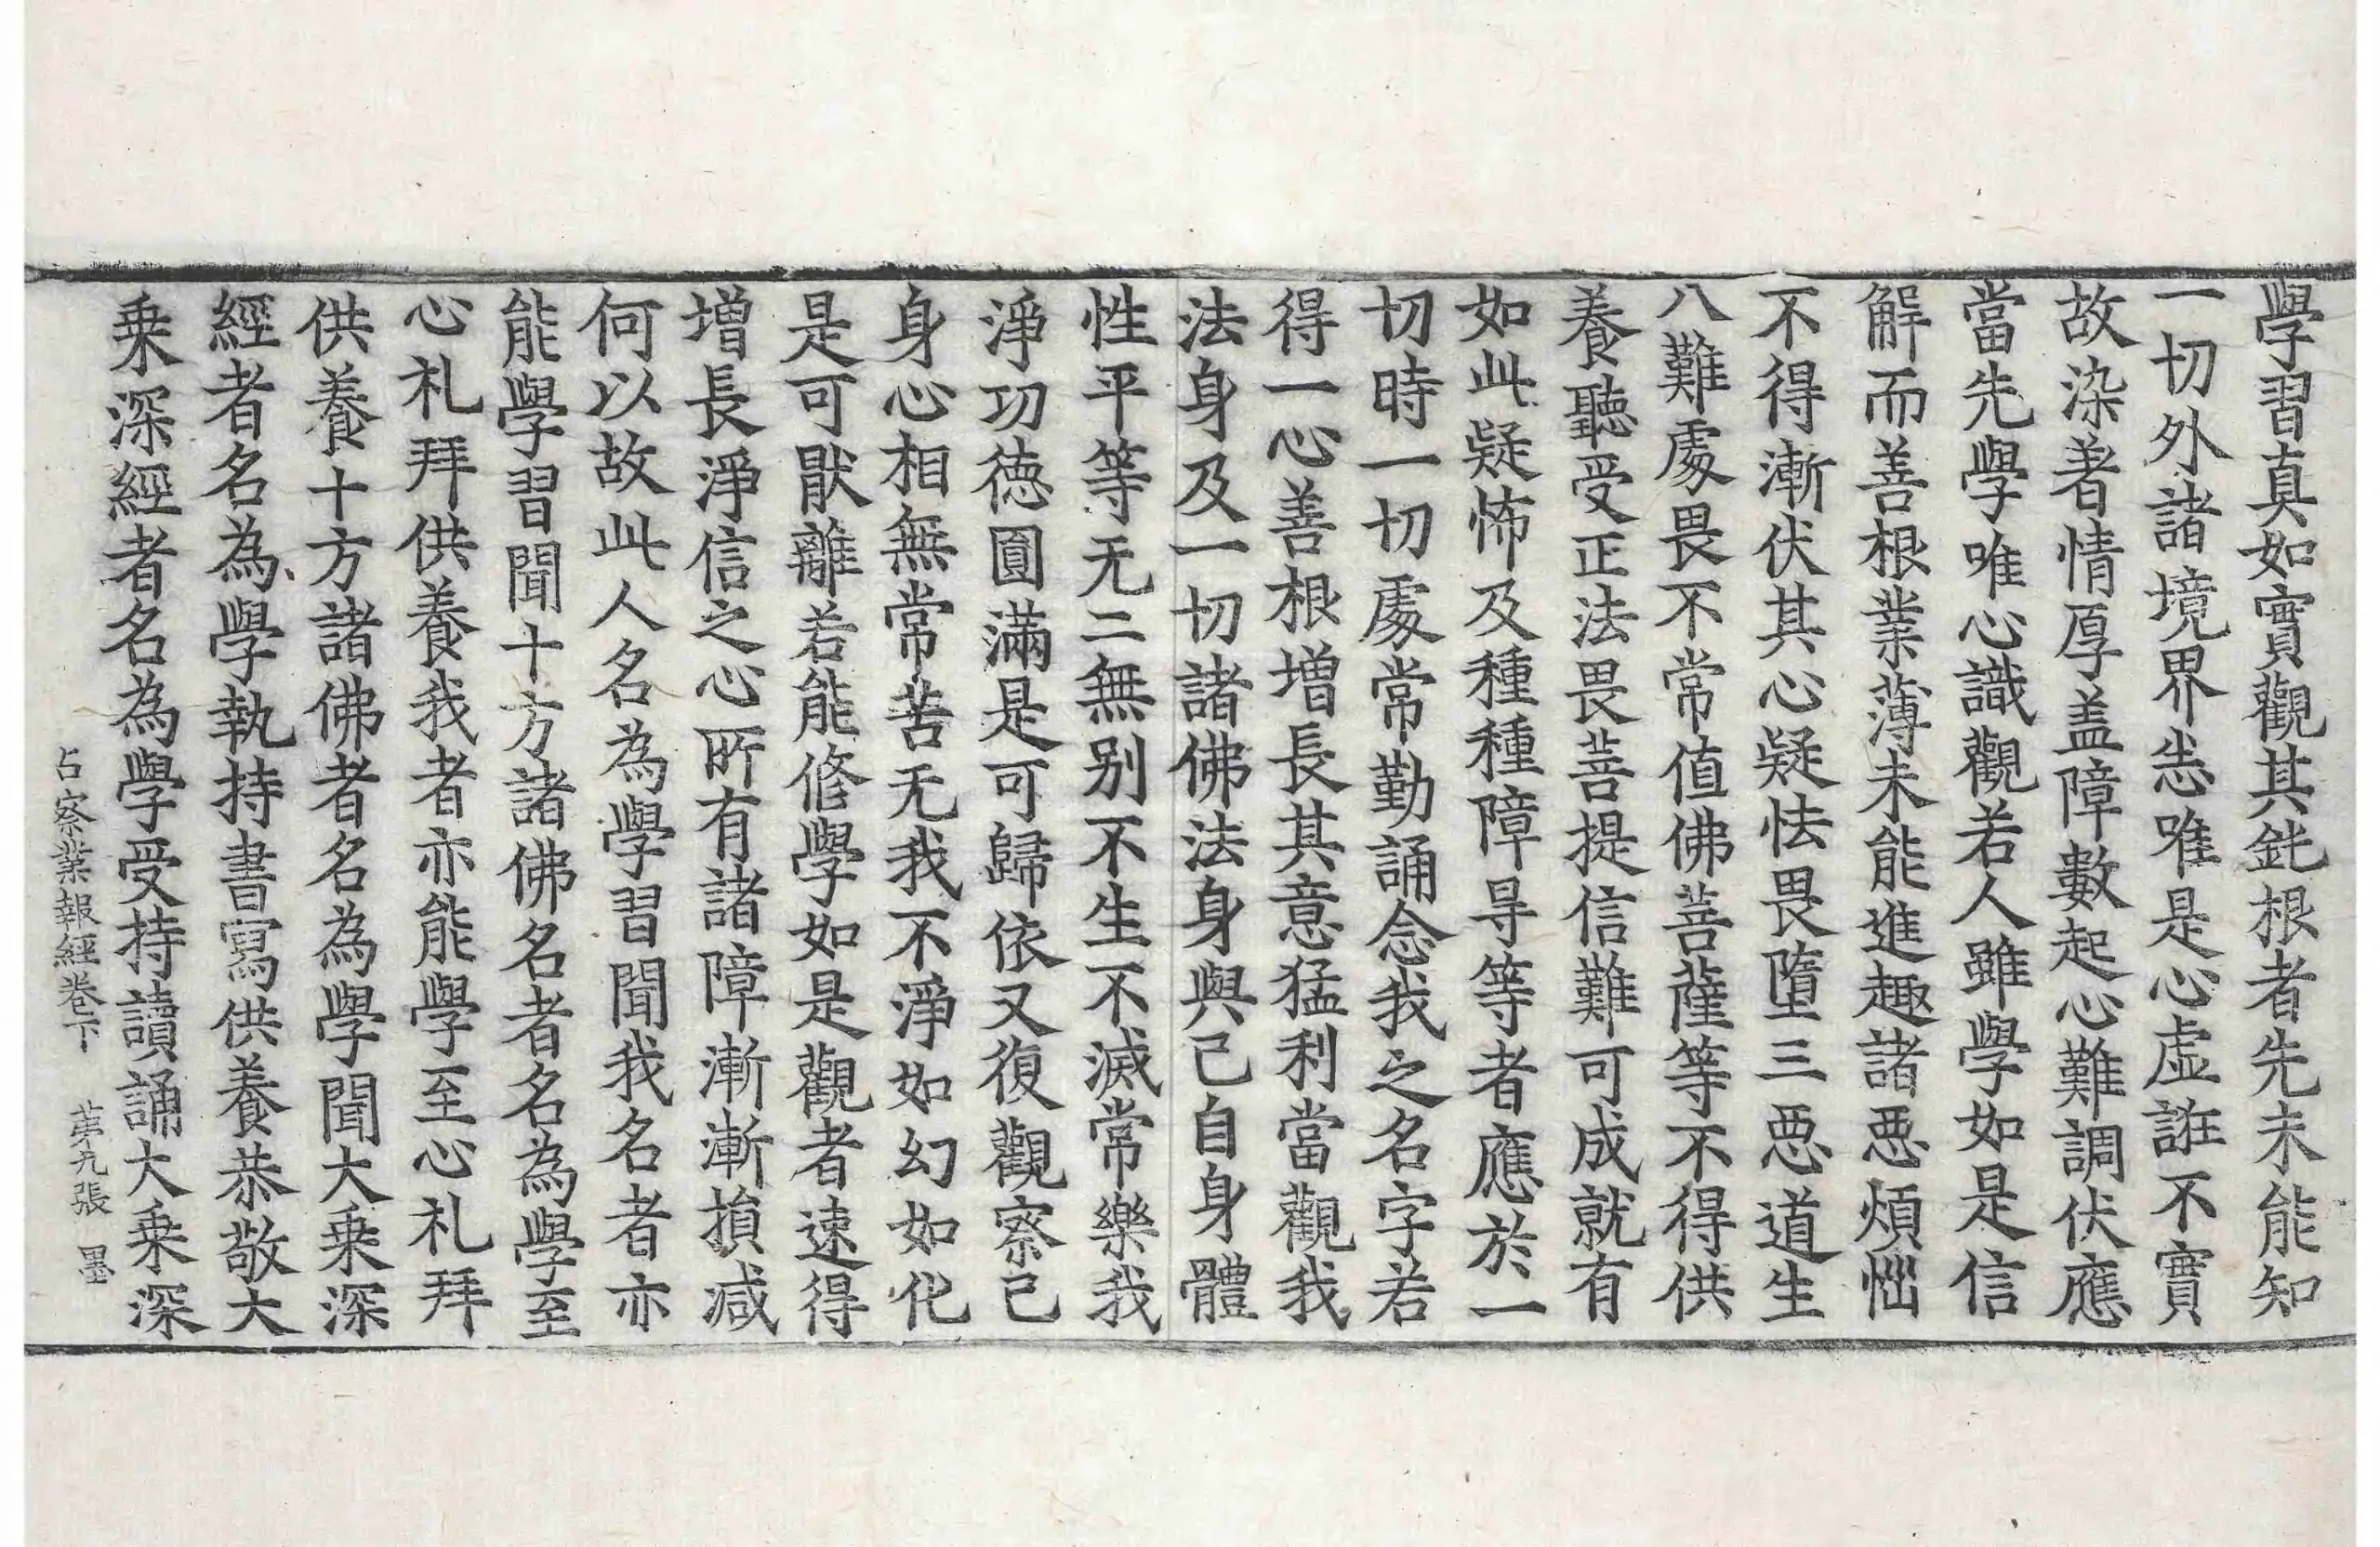 學習真如實觀其鈍根者先未能知
一切外諸境界悉唯是心虛誑不實
故染著情厚盖障數起心難調伏應
當先學唯心識觀若人雖學如是信
解而善根業薄未能進趣諸惡煩惱
不得漸伏其心疑怯畏墮三惡道生
八難處畏不常值佛菩薩等不得供
養聽受正法畏菩提信難可成就有
如此疑怖及種種障㝵等者應於一
切時一切處常勤誦念我之名字若
得一心善根增長其意猛利當觀我
法身及一切諸佛法身與己自身體
性平等无二無别不生不滅常樂我
淨功德圓滿是可歸依又復觀察己
身心相無常苦无我不淨如幻如化
是可厭離若能修學如是觀者速得
增長淨信之心所有諸障漸漸損减
何以故此人名為學習聞我名者亦
能學習聞十方諸佛名者名為學至
心礼拜供養我者亦能學至心礼拜
供養十方諸佛者名為學聞大乗深
經者名為學執持書寫供養恭敬大
乗深經者名為學受持讀誦大乗深
占察業報經卷下 苐九張 墨